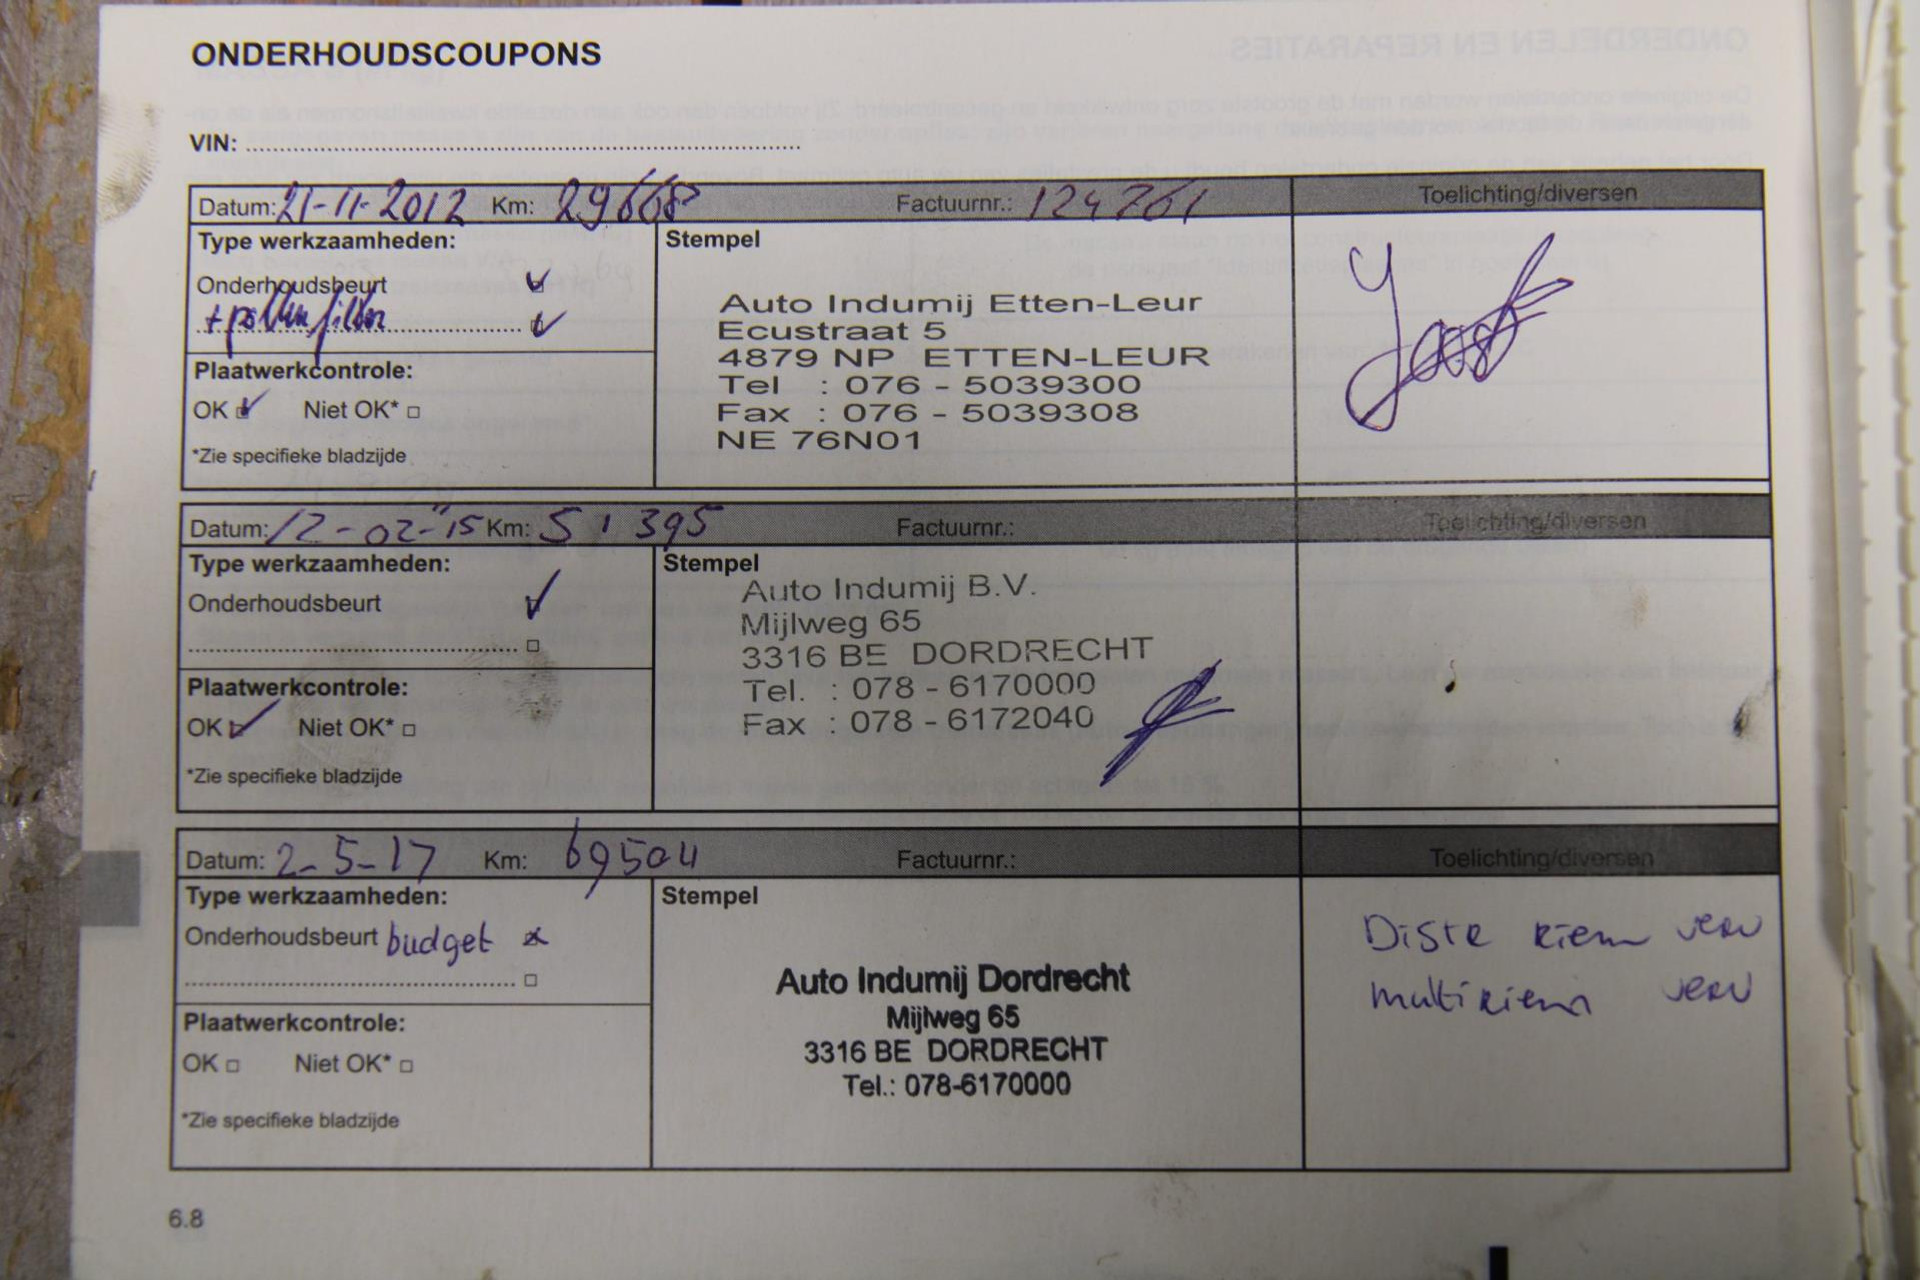 ONDERHOUDSCOUPONS
VIN:
Datum: 21-11-2012 Km: 29668 Factuurnr.: 124761 Toelichting/diversen
Type werkzaamheden:
Stempel
Onderhoudsbeurt
+ pollenfilter
Plaatwerkcontrole:
OK Niet OK*
*Zie specifieke bladzijde
Auto Indumij Etten-Leur
Ecustraat 5
4879 NP ETTEN-LEUR
Tel : 076 - 5039300
Fax : 076 - 5039308
NE 76N01
Joost
Datum: 12-02-'15 Km: 51395 Factuurnr.: Toelichting/diversen
Type werkzaamheden:
Stempel
Onderhoudsbeurt
Plaatwerkcontrole:
OK Niet OK*
*Zie specifieke bladzijde
Auto Indumij B.V.
Mijlweg 65
3316 BE DORDRECHT
Tel. : 078 - 6170000
Fax : 078 - 6172040
Datum: 2-5-17 Km: 69504 Factuurnr.: Toelichting/diversen
Type werkzaamheden:
Stempel
Onderhoudsbeurt budget
Plaatwerkcontrole:
OK Niet OK*
*Zie specifieke bladzijde
Auto Indumij Dordrecht
Mijlweg 65
3316 BE DORDRECHT
Tel.: 078-6170000
Distr riem verv
multiriem verv
6.8